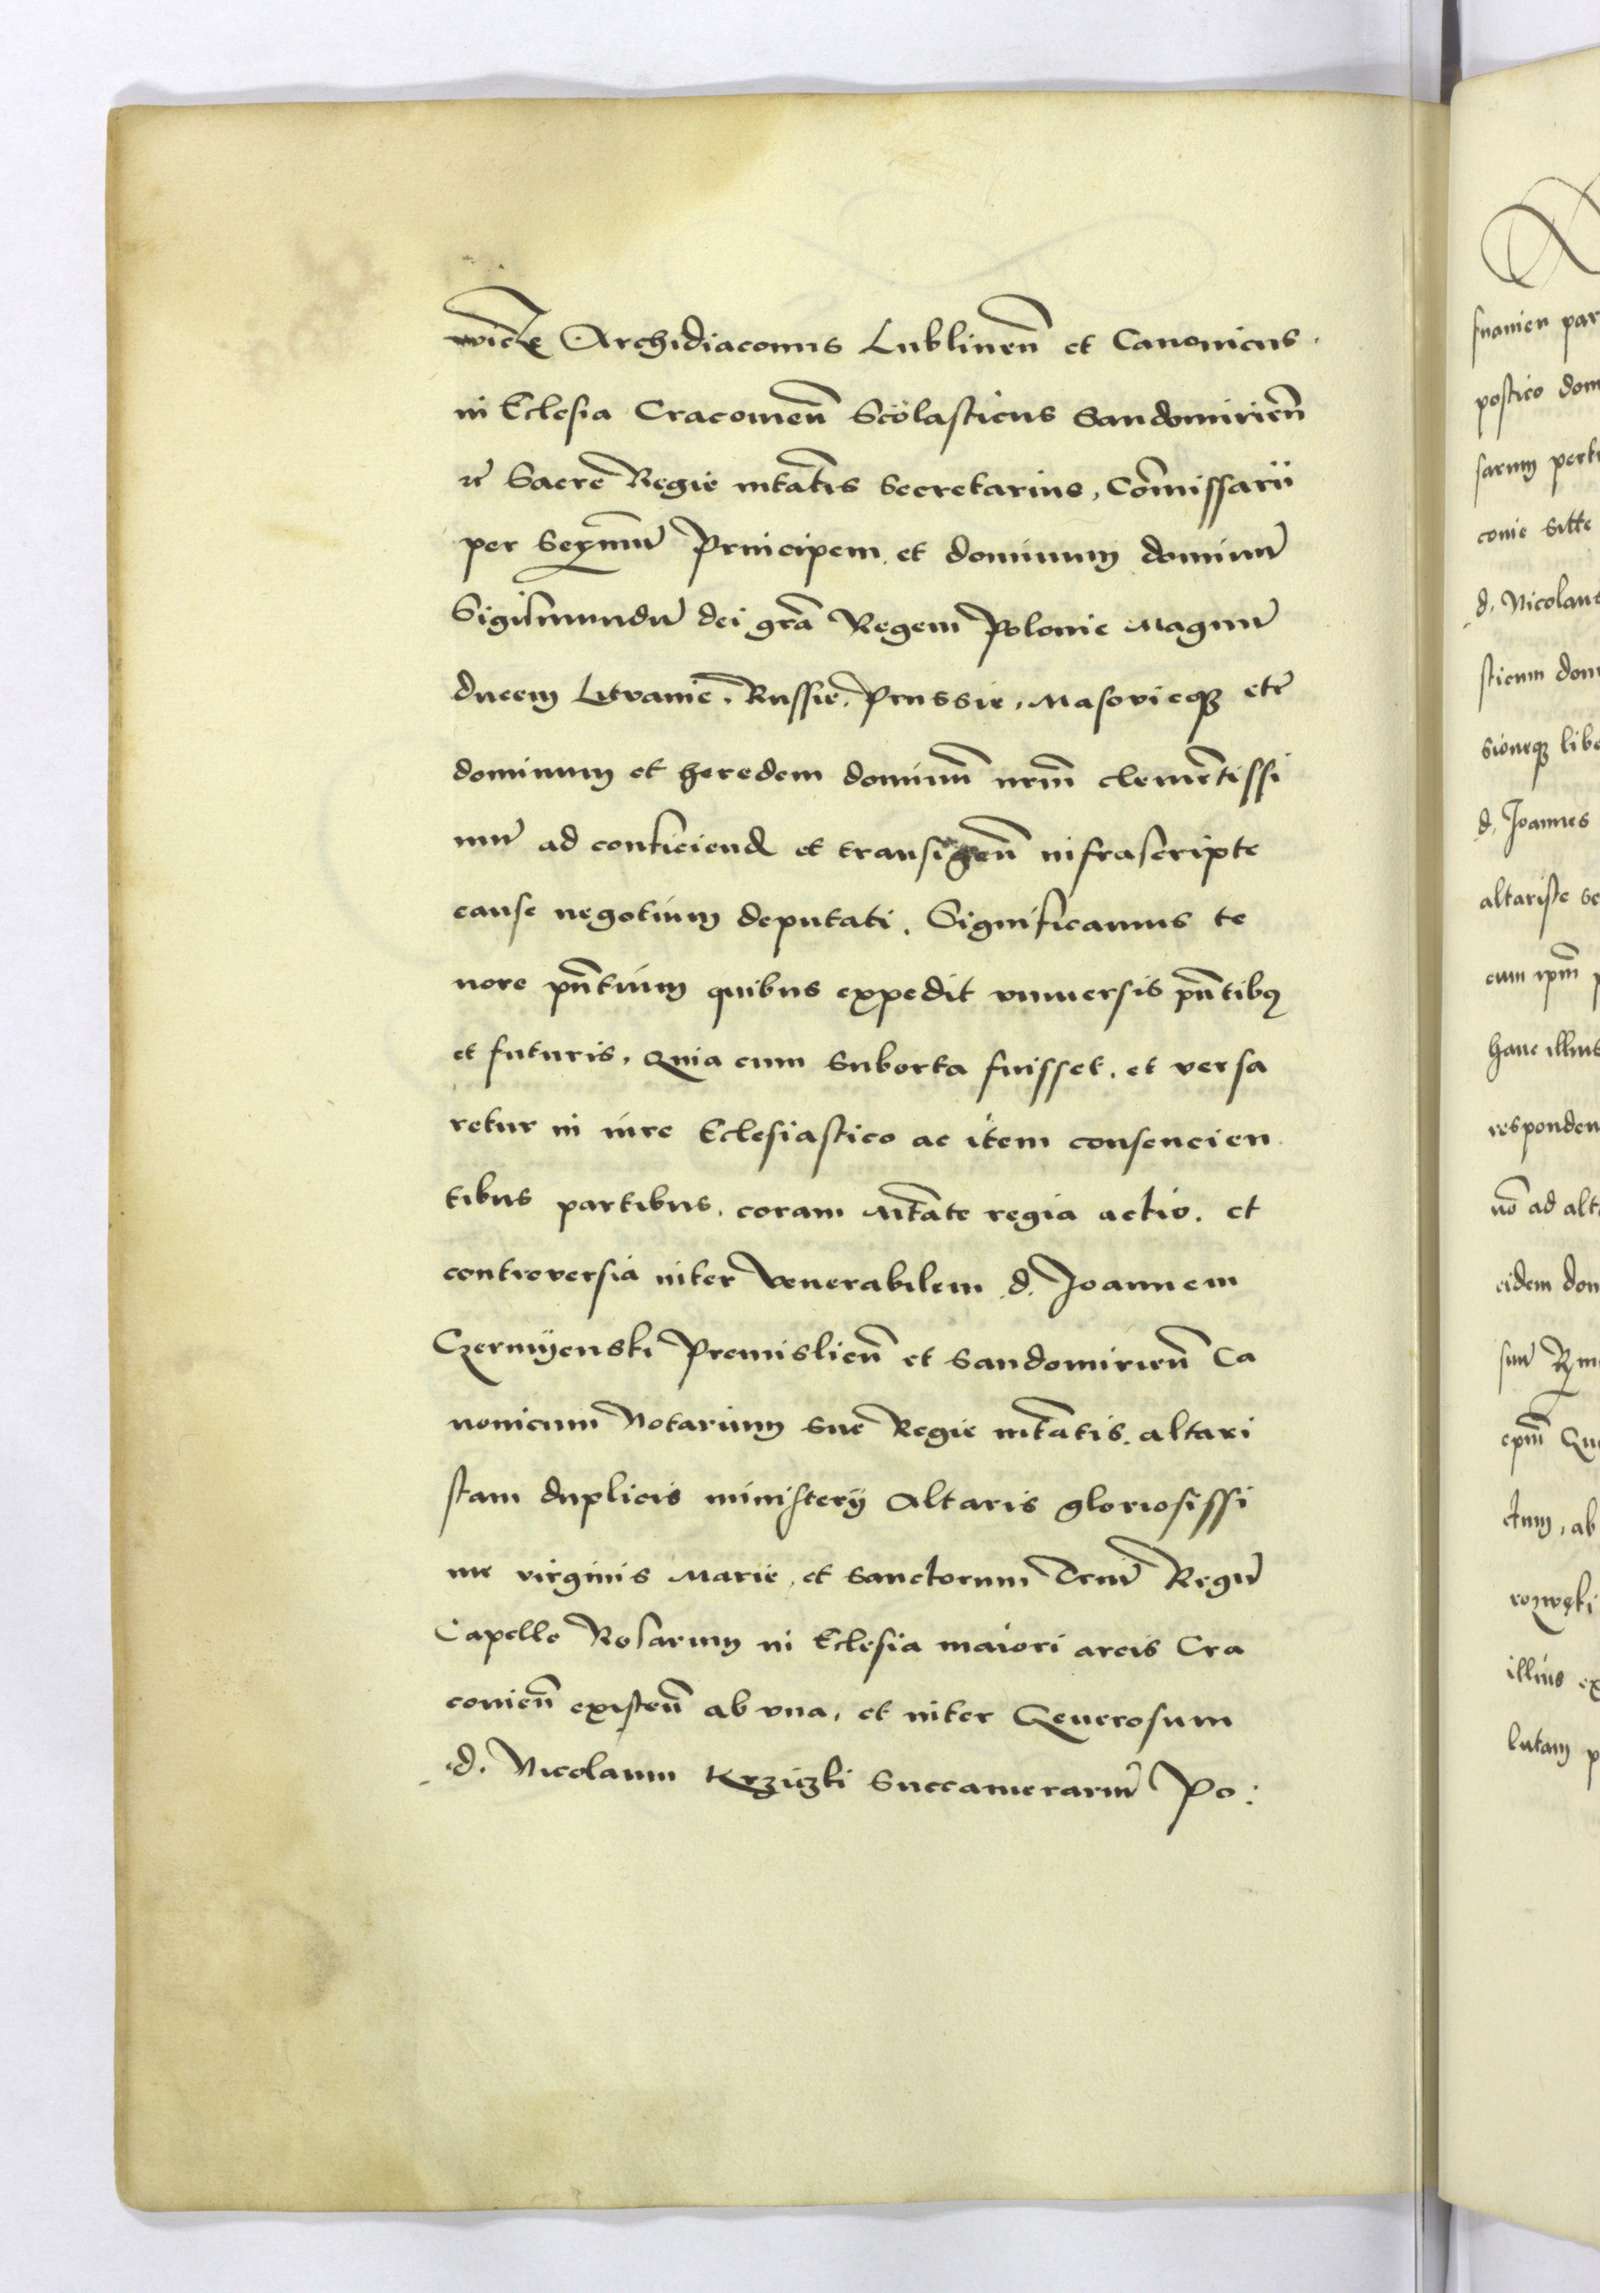 Archidiaconus Lublinen̄ et Canonicus
in Eclesia Cracouien̄ Scōlasticus Sandomirien̄
Sacre Regie mtatis Secretarius, Cōmissarii
per Serenmū Principem et dominum dominū
Sigismundū dei grā Regem Polonie Magnū
ducem Litvanie, Russie, Prussie, Masovieq3 etc̄
dominum et heredem dominū nrm̄ clemētissi
mū ad conficiend et transigen̄ infrascripte
cause negotium deputati. Significamus te
nore pn̄tium quibus expedit vniuersis pn̄tibꝯ
et futuris, Quia cum suborta fuisset, et versa
retur in iure Eclesiastico ac item consencien
tibus partibus, coram Mtate regia actio, et
controversia inter Venerabilem d. Joannem
Czermyenski Premislien̄ et Sandomirien̄ Ca
nonicum Notarium Sue Regie mtatis, altari
stam duplicis ministerij Altaris gloriosissi
me virginis Marie, et Sanctorum Triū Regū
Capelle Rosarum in Eclesia maiori arcis Cra
couien̄ existen̄ ab vna, et inter Generosum
d. Nicolaum Krziczki Succamerariū Po:
postico dom
d. Nicolaus
sticum dom
sioneq3 libe
d. Joannes
altariste se
cum ipm̄ p
hanc illius
responden
nō ad alt
eidem dom
illius ex